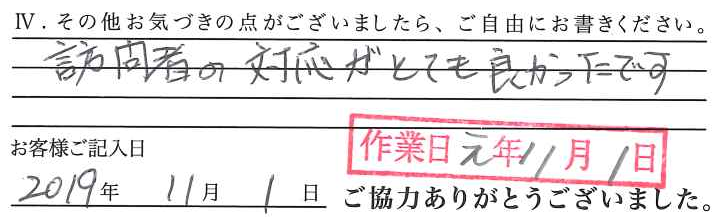 Ⅳ．その他お気づきの点がございましたら、ご自由にお書きください。
訪問者の対応がとても良かったです
お客様ご記入日
作業日 元年11月1日
2019年 11月 1日
ご協力ありがとうございました。